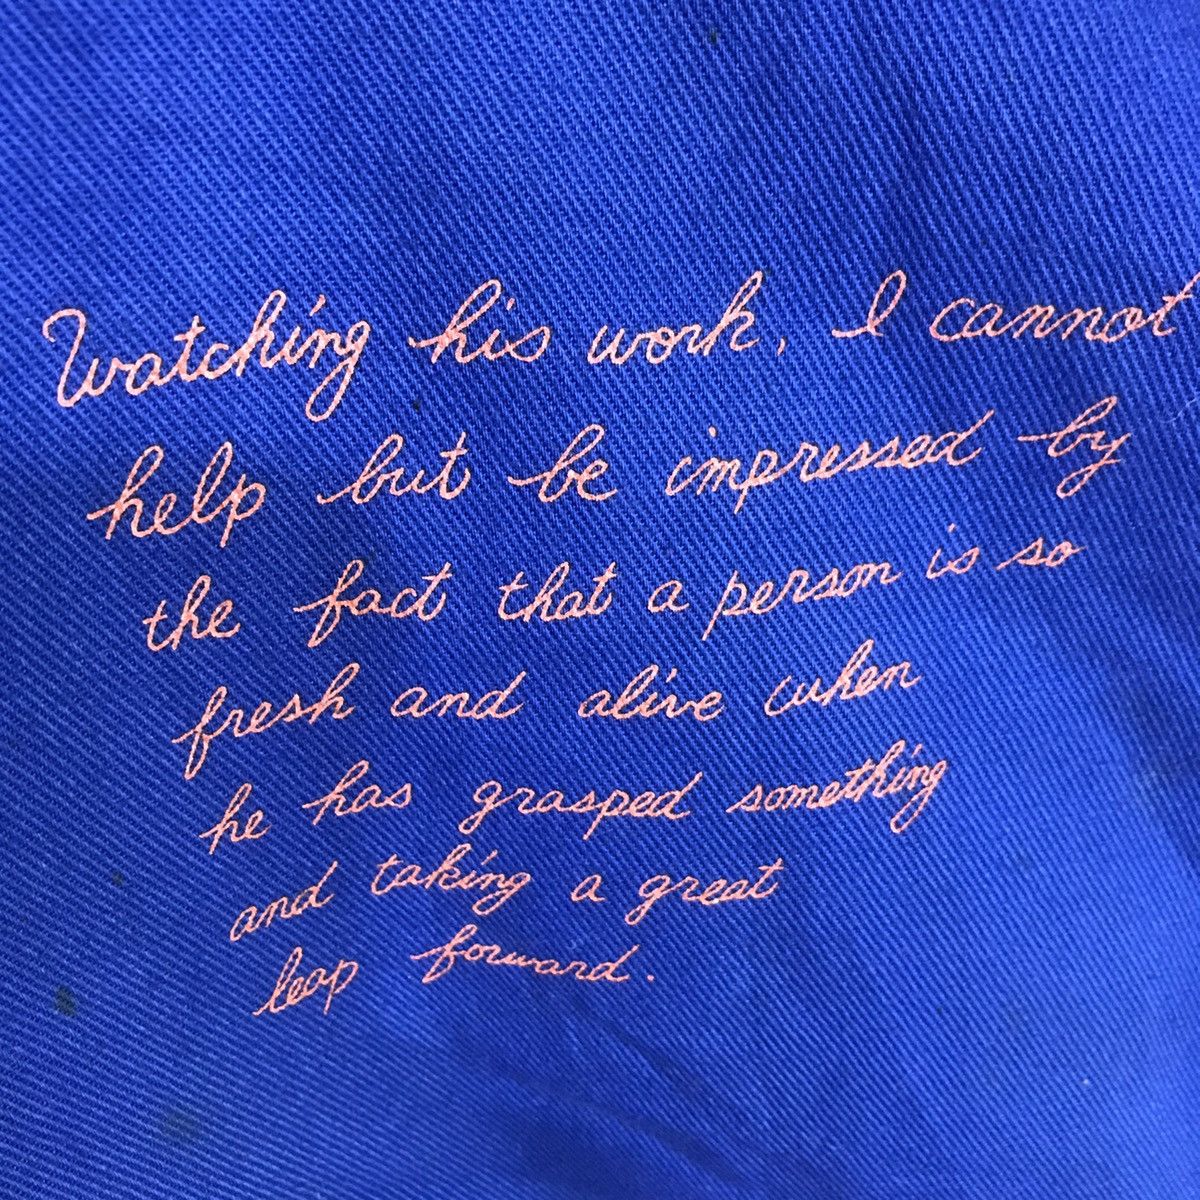 Watching his work, I cannot
help but be impressed by
the fact that a person is so
fresh and alive when
he has grasped something
and taking a great
leap forward.